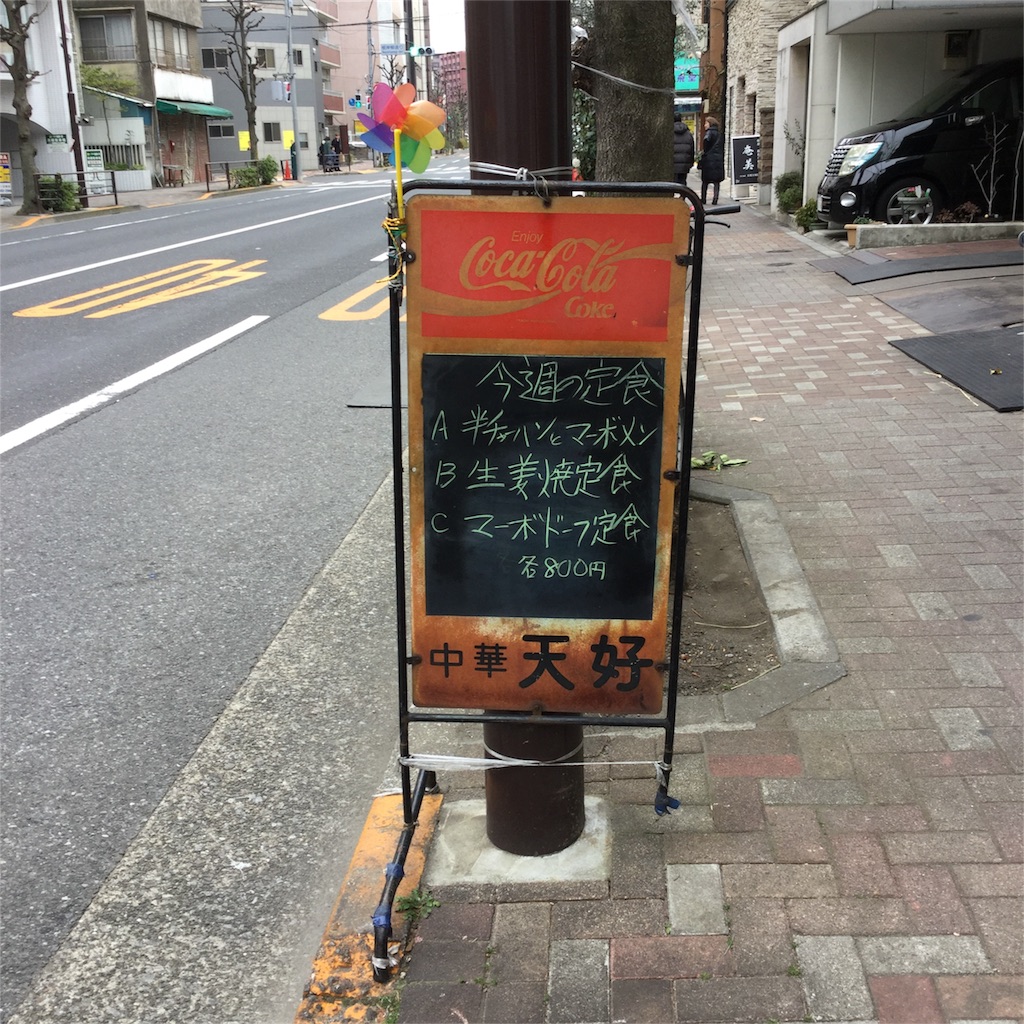 Enjoy
Coca-Cola
Coke
今週の定食
A 半チャーハンとマーボメン
B 生姜焼定食
C マーボドーフ定食
各800円
中華 天好